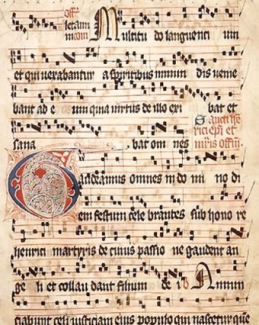 Multitudo languenti um
et qui vexabantur a spiritibus immun dis venie
bant ad e um quia virtus de illo exi bat et
sana bat om nes
Gaudeamus omnes in do mi no di
em festum cele brantes sub hono re
henrici martyris de cuius passio ne gaudent an
ge li et collau dant filium de i
ciabunt celi iusticiam eius populo qui nascetur que